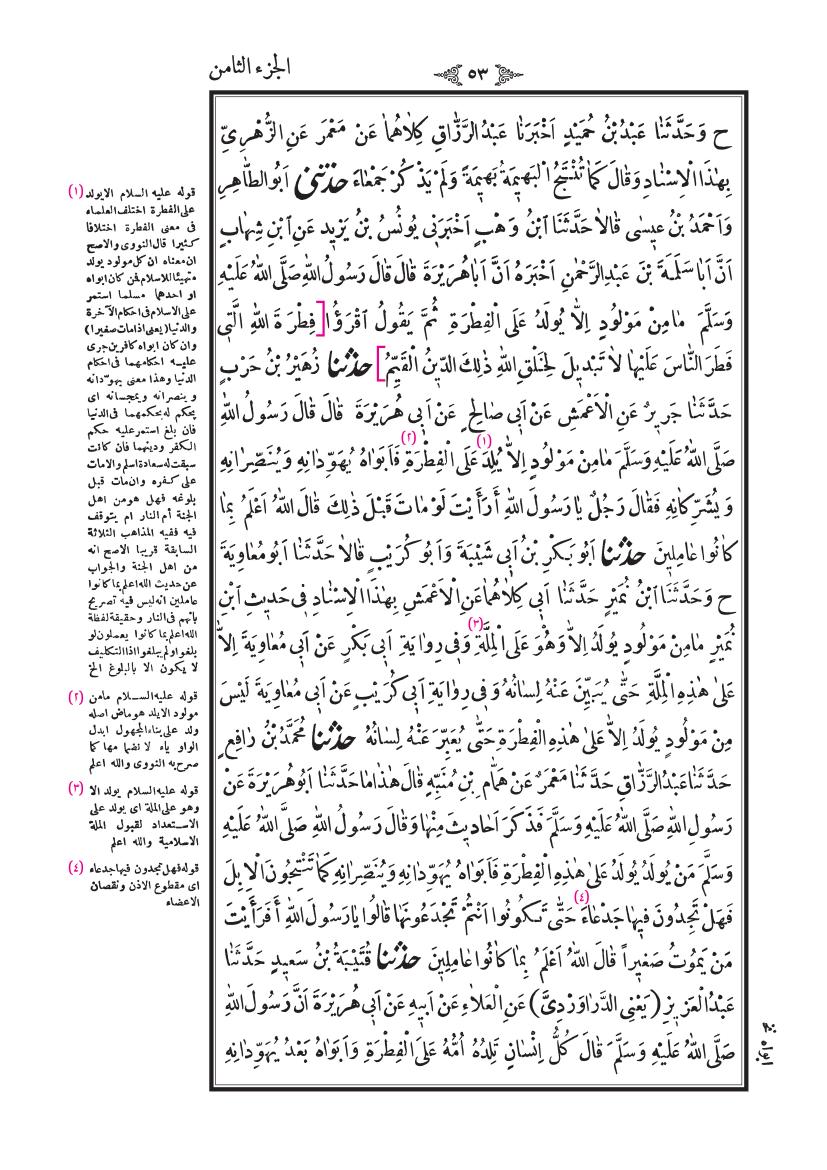 الجزء الثامن
٥٣
ح وَحَدَّثَنَا عَبْدُ بْنُ حُمَيْدٍ اَخْبَرَنَا عَبْدُ الرَّزَّاقِ كِلَاهُمَا عَنْ مَعْمَرٍ عَنِ الزُّهْرِيِّ
بِهٰذَا الْاِسْنَادِ وَقَالَ كَمَا تُنْتَجُ الْبَهِيمَةُ بَهِيمَةً وَلَمْ يَذْكُرْ جَمْعَاءَ حَدَّثَنِي اَبُو الطَّاهِرِ
وَاَحْمَدُ بْنُ عِيسٰى قَالَا حَدَّثَنَا ابْنُ وَهْبٍ اَخْبَرَنِي يُونُسُ بْنُ يَزِيدَ عَنِ ابْنِ شِهَابٍ
اَنَّ اَبَا سَلَمَةَ بْنَ عَبْدِ الرَّحْمٰنِ اَخْبَرَهُ اَنَّ اَبَا هُرَيْرَةَ قَالَ قَالَ رَسُولُ اللهِ صَلَّى اللهُ عَلَيْهِ
وَسَلَّمَ مَا مِنْ مَوْلُودٍ اِلَّا يُولَدُ عَلَى الْفِطْرَةِ ثُمَّ يَقُولُ اقْرَؤُا [فِطْرَةَ اللهِ الَّتِي
فَطَرَ النَّاسَ عَلَيْهَا لَا تَبْدِيلَ لِخَلْقِ اللهِ ذٰلِكَ الدِّينُ الْقَيِّمُ] حَدَّثَنَا زُهَيْرُ بْنُ حَرْبٍ
حَدَّثَنَا جَرِيرٌ عَنِ الْاَعْمَشِ عَنْ اَبِي صَالِحٍ عَنْ اَبِي هُرَيْرَةَ قَالَ قَالَ رَسُولُ اللهِ
صَلَّى اللهُ عَلَيْهِ وَسَلَّمَ مَا مِنْ مَوْلُودٍ اِلَّا يُلِدَ (١) عَلَى الْفِطْرَةِ (٢) فَاَبَوَاهُ يُهَوِّدَانِهِ وَيُنَصِّرَانِهِ
وَيُشَرِّكَانِهِ فَقَالَ رَجُلٌ يَا رَسُولَ اللهِ أَرَأَيْتَ لَوْ مَاتَ قَبْلَ ذٰلِكَ قَالَ اللهُ اَعْلَمُ بِمَا
كَانُوا عَامِلِينَ حَدَّثَنَا اَبُو بَكْرِ بْنُ اَبِي شَيْبَةَ وَاَبُو كُرَيْبٍ قَالَا حَدَّثَنَا اَبُو مُعَاوِيَةَ
ح وَحَدَّثَنَا ابْنُ نُمَيْرٍ حَدَّثَنَا اَبِي كِلَاهُمَا عَنِ الْاَعْمَشِ بِهٰذَا الْاِسْنَادِ فِي حَدِيثِ ابْنِ
نُمَيْرٍ مَا مِنْ مَوْلُودٍ يُولَدُ اِلَّا وَهُوَ عَلَى الْمِلَّةِ (٣) وَفِي رِوَايَةِ اَبِي بَكْرٍ عَنْ اَبِي مُعَاوِيَةَ اِلَّا
عَلَى هٰذِهِ الْمِلَّةِ حَتَّى يُبَيِّنَ عَنْهُ لِسَانُهُ وَفِي رِوَايَةِ اَبِي كُرَيْبٍ عَنْ اَبِي مُعَاوِيَةَ لَيْسَ
مِنْ مَوْلُودٍ يُولَدُ اِلَّا عَلَى هٰذِهِ الْفِطْرَةِ حَتَّى يُعَبِّرَ عَنْهُ لِسَانُهُ حَدَّثَنَا مُحَمَّدُ بْنُ رَافِعٍ
حَدَّثَنَا عَبْدُ الرَّزَّاقِ حَدَّثَنَا مَعْمَرٌ عَنْ هَمَّامِ بْنِ مُنَبِّهٍ قَالَ هٰذَا مَا حَدَّثَنَا اَبُو هُرَيْرَةَ عَنْ
رَسُولِ اللهِ صَلَّى اللهُ عَلَيْهِ وَسَلَّمَ فَذَكَرَ اَحَادِيثَ مِنْهَا وَقَالَ رَسُولُ اللهِ صَلَّى اللهُ عَلَيْهِ
وَسَلَّمَ مَنْ يُولَدُ يُولَدُ عَلَى هٰذِهِ الْفِطْرَةِ فَاَبَوَاهُ يُهَوِّدَانِهِ وَيُنَصِّرَانِهِ كَمَا تَنْتِجُونَ الْاِبِلَ
فَهَلْ تَجِدُونَ فِيهَا جَدْعَاءَ (٤) حَتَّى تَكُونُوا اَنْتُمْ تَجْدَعُونَهَا قَالُوا يَا رَسُولَ اللهِ أَفَرَأَيْتَ
مَنْ يَمُوتُ صَغِيراً قَالَ اللهُ اَعْلَمُ بِمَا كَانُوا عَامِلِينَ حَدَّثَنَا قُتَيْبَةُ بْنُ سَعِيدٍ حَدَّثَنَا
عَبْدُ الْعَزِيزِ (يَعْنِي الدَّرَاوَرْدِيَّ) عَنِ الْعَلَاءِ عَنْ اَبِيهِ عَنْ اَبِي هُرَيْرَةَ اَنَّ رَسُولَ اللهِ
صَلَّى اللهُ عَلَيْهِ وَسَلَّمَ قَالَ كُلُّ اِنْسَانٍ تَلِدُهُ اُمُّهُ عَلَى الْفِطْرَةِ وَاَبَوَاهُ بَعْدُ يُهَوِّدَانِهِ
(١) قوله عليه السلام الايولد
على الفطرة اختلف العلماء
فى معنى الفطرة اختلافا
كثيرا قال النووى والاصح
ان معناه ان كل مولود يولد
متهيئا للاسلام فمن كان ابواه
او احدهما مسلما استمر
على الاسلام فى احكام الآخرة
والدنيا (يعنى اذا مات صغيرا)
وان كان ابواه كافرين جرى
عليه احكامهما فى احكام
الدنيا وهذا معنى يهودانه
وينصرانه ويمجسانه اى
يحكم له بحكمهما فى الدنيا
فان بلغ استمر عليه حكم
الكفر ودينهما فان كانت
سبقت له سعادة اسلم والا مات
على كفره وان مات قبل
بلوغه فهل هو من اهل
الجنة أم النار ام يتوقف
فيه ففيه المذاهب الثلاثة
السابقة قريبا الاصح انه
من اهل الجنة والجواب
عن حديث الله اعلم بما كانوا
عاملين انه ليس فيه تصريح
بأنهم فى النار وحقيقة لفظة
الله اعلم بما كانوا يعملون لو
بلغوا ولم يبلغوا اذ التكليف
لا يكون الا بالبلوغ الخ
(٢) قوله عليه السلام مامن
مولود الايلد هو ماض اصله
ولد على بناء المجهول ابدل
الواو ياء لانضمامها كما
صرح به النووى والله اعلم
(٣) قوله عليه السلام يولد الا
وهو على الملة اى يولد على
الاستعداد لقبول الملة
الاسلامية والله اعلم
(٤) قوله فهل تجدون فيها جدعاء
اى مقطوع الاذن ونقصان
الاعضاء
ابواه